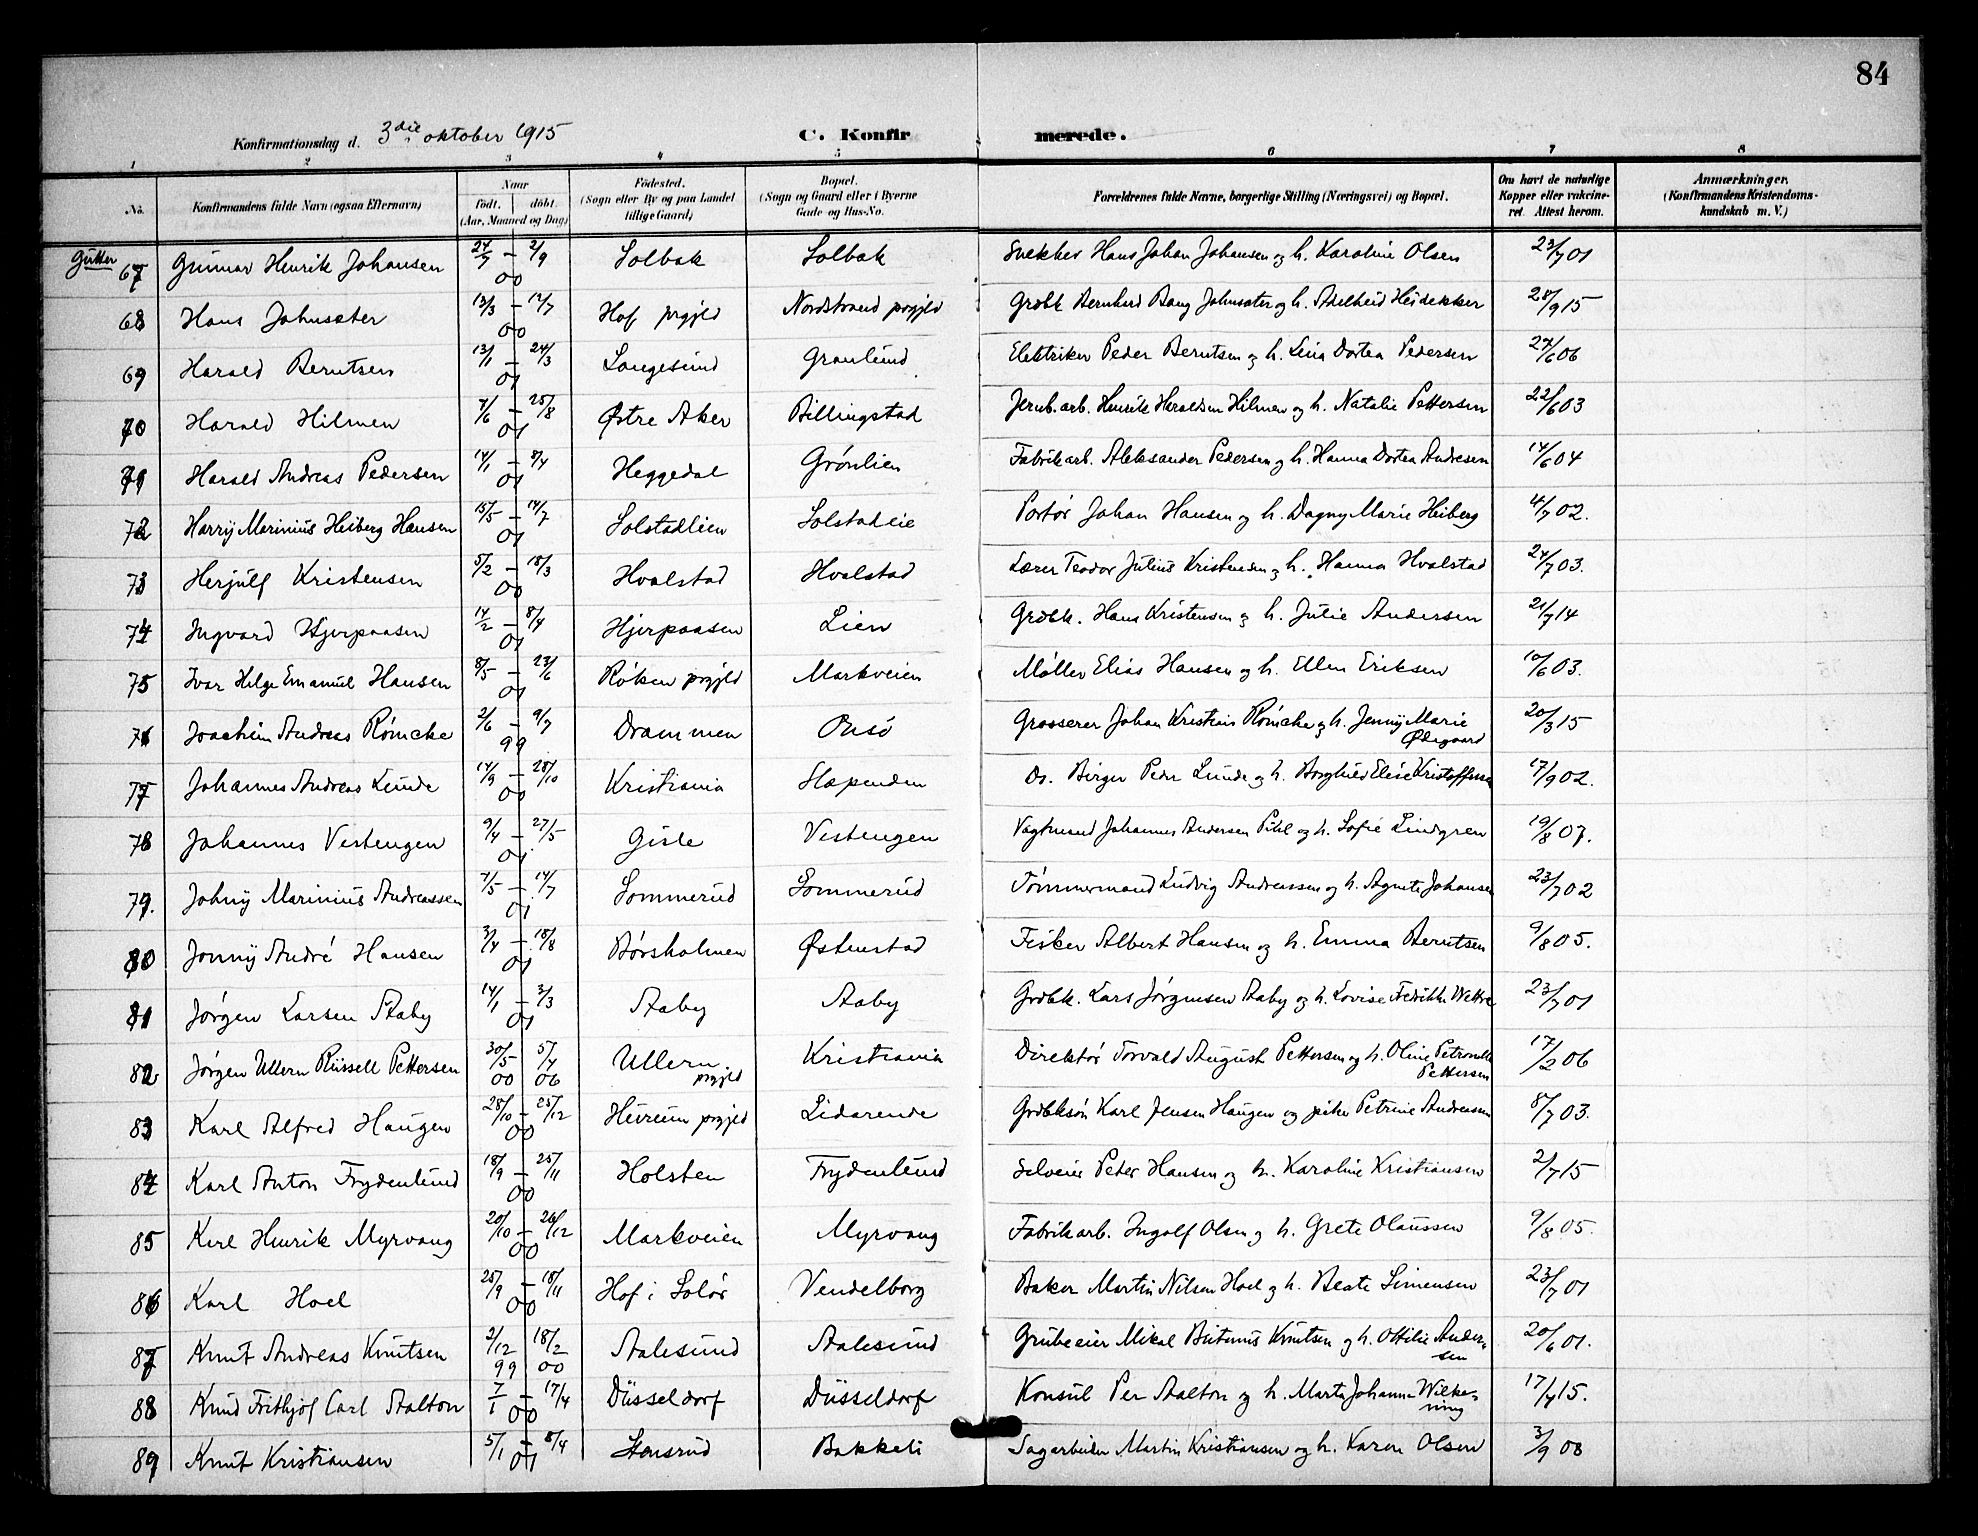 84
Konfirmationsdag d. 3die oktober 1915 C. Konfirmerede.
1 2 3 4 5 6 7 8
No. Konfirmandens fulde Navn (ogsaa Efternavn) Naar født. døbt. (Aar, Maaned og Dag) Fødested. (Sogn eller By og paa Landet tillige Gaard) Bopæl. (Sogn og Gaard eller i Byerne Gade og Hus-No. Forældrenes fulde Navne, borgerlige Stilling (Næringsvei) og Bopæl. Om havt de naturlige Kopper eller vakcineret. Attest herom. Anmærkninger. (Konfirmandens Kristendomskundskab m. V.)
Gutter
67 Gunnar Henrik Johansen 24/7 – 2/9 00 Solbak Solbak Snekker Hans Johan Johansen og h. Karoline Olsen 23/7 01
68 Hans Johnsæter 13/3 – 12/7 00 Hof prgjld Nordstrand prgjld Grdbk Bernhard Bang Johnsæter og h. Adelheid Heidekker 28/9 15
69 Harald Berntsen 13/1 – 24/3 01 Langesund Granlund Elektriker Peder Berntsen og h. Lina Dortea Pedersen 27/6 06
70 Harald Hilmen 7/6 – 25/8 01 Østre Aker Billingstad Jernb.arb. Henrik Haraldsen Hilmen og h. Natalie Pettersen 22/6 03
71 Harald Andreas Pedersen 14/1 – 8/4 01 Heggedal Grønlien Fabrikarb. Aleksander Pedersen og h. Hanna Dortea Andresen 14/6 04
72 Harry Marinius Heiberg Hansen 15/5 – 14/7 01 Solstadlien Solstadeie Portør Johan Hansen og h. Dagny Marie Heiberg 4/7 02.
73 Herjulf Kristensen 5/2 – 18/3 00 Hvalstad Hvalstad Lærer Teodor Julius Kristensen og h. Hanna Hvalstad 24/7 03.
74 Ingvard Hjerpaasen 14/2 – 8/4 01 Hjerpaasen Lien Grdbk. Hans Kristensen og h. Julie Andersen 21/7 14
75 Ivar Helge Emanuel Hansen 8/5 – 23/6 01 Røken prgjld Markveien Møller Elias Hansen og h. Ellen Eriksen 10/6 03.
76 Joachim Andreas Rømcke 2/6 – 9/7 99 Drammen Onsø Grosserer Johan Kristian Rømcke og h. Jenny Marie Ødegaard 20/3 15
77 Johannes Andreas Lunde 14/9 – 28/10 00 Kristiania Slæpenden Do. Birger Peder Lunde og h. Borghild Elise Kristoffersen 17/9 02.
78 Johannes Vestengen 9/4 – 27/5 01 Gisle Vestengen Vagtmand Johannes Andersen Pihl og h. Sofie Lindgren 19/8 07.
79. Johny Marinius Andreassen 7/5 – 14/7 01 Sommerud Sommerud Tømmermand Ludvig Andreassen og h. Agnete Johansen 23/7 02
80 Jonny André Hansen 3/4 – 18/8 01 Børsholmen Østenstad Fisker Albert Hansen og h. Emma Berntsen 9/8 05.
81 Jørgen Larsen Aaby 14/1 – 3/3 01 Aaby Aaby Grdbk. Lars Jørgensen Aaby og h. Lovise Fredrikke Wettre 23/7 01
82 Jørgen Ullern Rüssell Pettersen 30/5 00 5/4 06 Ullern prgjld Kristiania Direktør Torvald August Pettersen og h. Oline Petronelle Pettersen 17/2 06
83 Karl Alfred Haugen 28/10 – 25/12 00 Hurum prgjeld Lidarende Grdbksøn Karl Jensen Haugen og pike Petrine Andreassen 8/7 03.
84 Karl Anton Frydenlund 18/9 – 25/11 00 Holsten Frydenlund Selveier Peter Hansen og h. Karoline Kristiansen 2/7 15
85 Karl Henrik Myrvang 20/10 – 26/12 00 Markveien Myrvang Fabrikarb. Ingolf Olsen og h. Grete Olaussen 9/8 05.
86 Karl Hoel 25/9 – 18/11 00 Hof i Solør Vendelborg Baker Martin Nilsen Hoel og h. Beate Simensen 23/7 01
87 Knut Andreas Knutsen 2/12 99 18/2 00 Aalesund Aalesund Grubeeier Mikal Knutsen og h. Ottilie Andersen 20/6 01.
88 Knud Frithjof Carl Aalton 7/1 – 17/4 00 Düsseldorf Düsseldorf Konsul Per Aalton og h. Marta Johanne Wilkening 17/4 15.
89 Knut Kristiansen 5/1 – 8/4 01 Stensrud Bakkeli Sagarbeider Martin Kristiansen og h. Karen Olsen 3/9 08